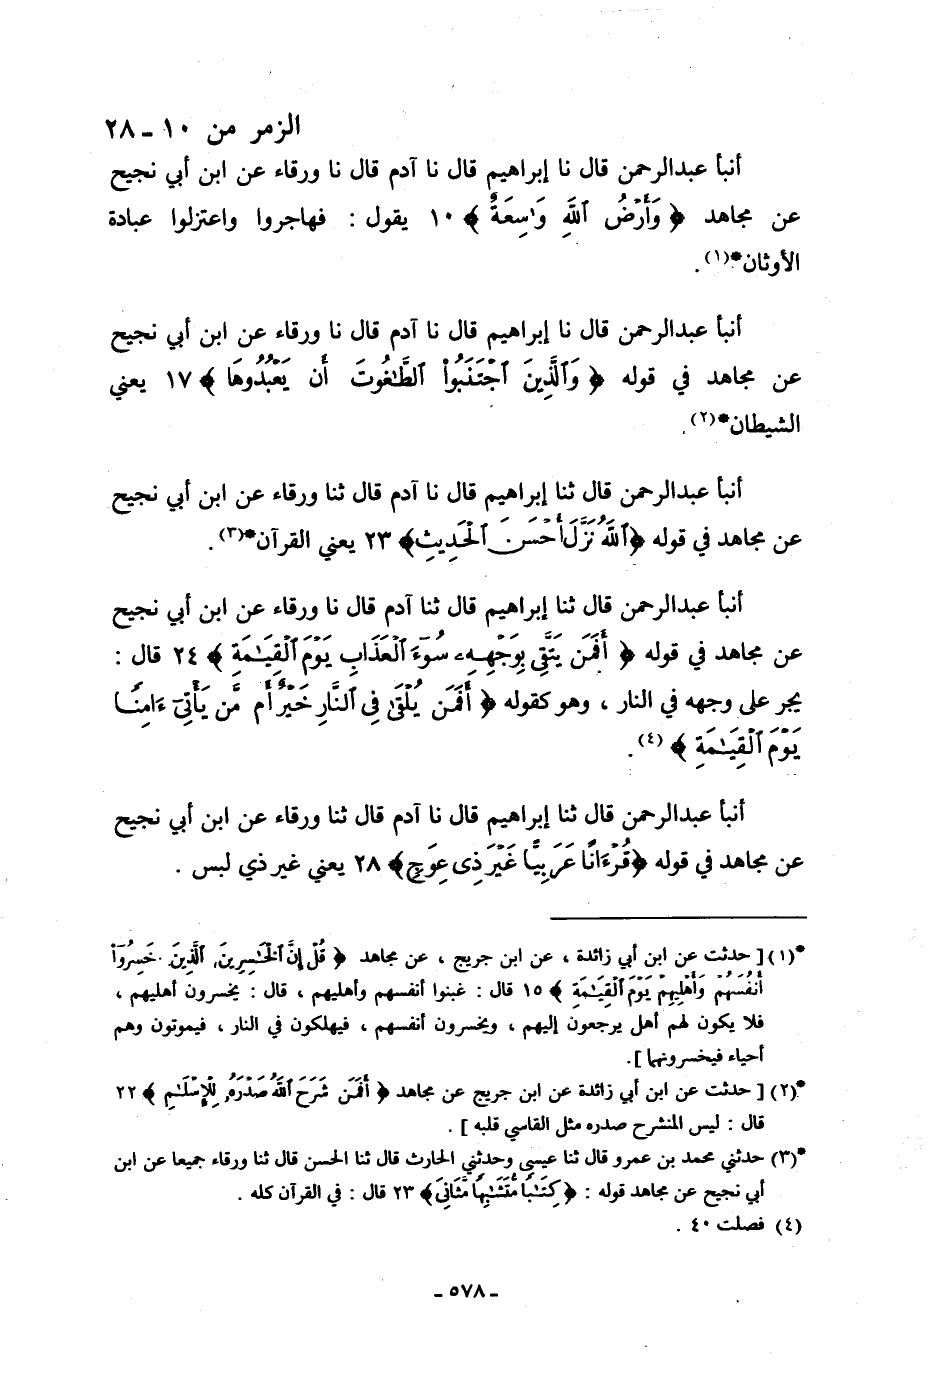 الزمر من ١٠ ـ ٢٨
أنبأ عبدالرحمن قال نا إبراهيم قال نا آدم قال نا ورقاء عن ابن أبي نجيح
عن مجاهد ﴿ وَأَرْضُ ٱللَّهِ وَٰسِعَةٌ ﴾ ١٠ يقول : فهاجروا واعتزلوا عبادة
الأوثان*(١).
أنبأ عبدالرحمن قال نا إبراهيم قال نا آدم قال نا ورقاء عن ابن أبي نجيح
عن مجاهد في قوله ﴿ وَٱلَّذِينَ ٱجْتَنَبُوا۟ ٱلطَّٰغُوتَ أَن يَعْبُدُوهَا ﴾ ١٧ يعني
الشيطان*(٢).
أنبأ عبدالرحمن قال ثنا إبراهيم قال نا آدم قال ثنا ورقاء عن ابن أبي نجيح
عن مجاهد في قوله ﴿ٱللَّهُ نَزَّلَ أَحْسَنَ ٱلْحَدِيثِ﴾ ٢٣ يعني القرآن*(٣).
أنبأ عبدالرحمن قال ثنا إبراهيم قال ثنا آدم قال نا ورقاء عن ابن أبي نجيح
عن مجاهد في قوله ﴿ أَفَمَن يَتَّقِى بِوَجْهِهِۦ سُوٓءَ ٱلْعَذَابِ يَوْمَ ٱلْقِيَٰمَةِ ﴾ ٢٤ قال :
يجر على وجهه في النار ، وهو كقوله ﴿ أَفَمَن يُلْقَىٰ فِى ٱلنَّارِ خَيْرٌ أَم مَّن يَأْتِىٓ ءَامِنًا
يَوْمَ ٱلْقِيَٰمَةِ ﴾ (٤).
أنبأ عبدالرحمن قال ثنا إبراهيم قال نا آدم قال ثنا ورقاء عن ابن أبي نجيح
عن مجاهد في قوله ﴿قُرْءَانًا عَرَبِيًّا غَيْرَ ذِى عِوَجٍ﴾ ٢٨ يعني غير ذي لبس .
*(١) [ حدثت عن ابن أبي زائدة ، عن ابن جريج ، عن مجاهد ﴿ قُلْ إِنَّ ٱلْخَٰسِرِينَ ٱلَّذِينَ خَسِرُوٓا۟
أَنفُسَهُمْ وَأَهْلِيهِمْ يَوْمَ ٱلْقِيَٰمَةِ ﴾ ١٥ قال : غبنوا أنفسهم وأهليهم ، قال : يخسرون أهليهم ،
فلا يكون لهم أهل يرجعون إليهم ، ويخسرون أنفسهم ، فيهلكون في النار ، فيموتون وهم
أحياء فيخسرونها ].
*(٢) [ حدثت عن ابن أبي زائدة عن ابن جريج عن مجاهد ﴿ أَفَمَن شَرَحَ ٱللَّهُ صَدْرَهُۥ لِلْإِسْلَٰمِ ﴾ ٢٢
قال : ليس المنشرح صدره مثل القاسي قلبه ] .
*(٣) حدثني محمد بن عمرو قال ثنا عيسى وحدثني الحارث قال ثنا الحسن قال ثنا ورقاء جميعا عن ابن
أبي نجيح عن مجاهد قوله : ﴿كِتَٰبًا مُّتَشَٰبِهًا مَّثَانِىَ﴾ ٢٣ قال : في القرآن كله .
(٤) فصلت ٤٠ .
ـ ٥٧٨ ـ